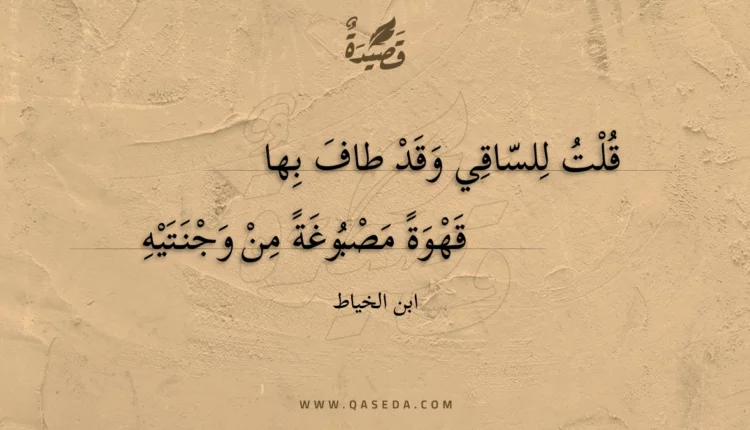 قَصِيدَةٌ
قُلْتُ لِلسّاقِي وَقَدْ طافَ بِها
قَهْوَةً مَصْبُوغَةً مِنْ وَجْنَتَيْهِ
ابن الخياط
WWW.QASEDA.COM